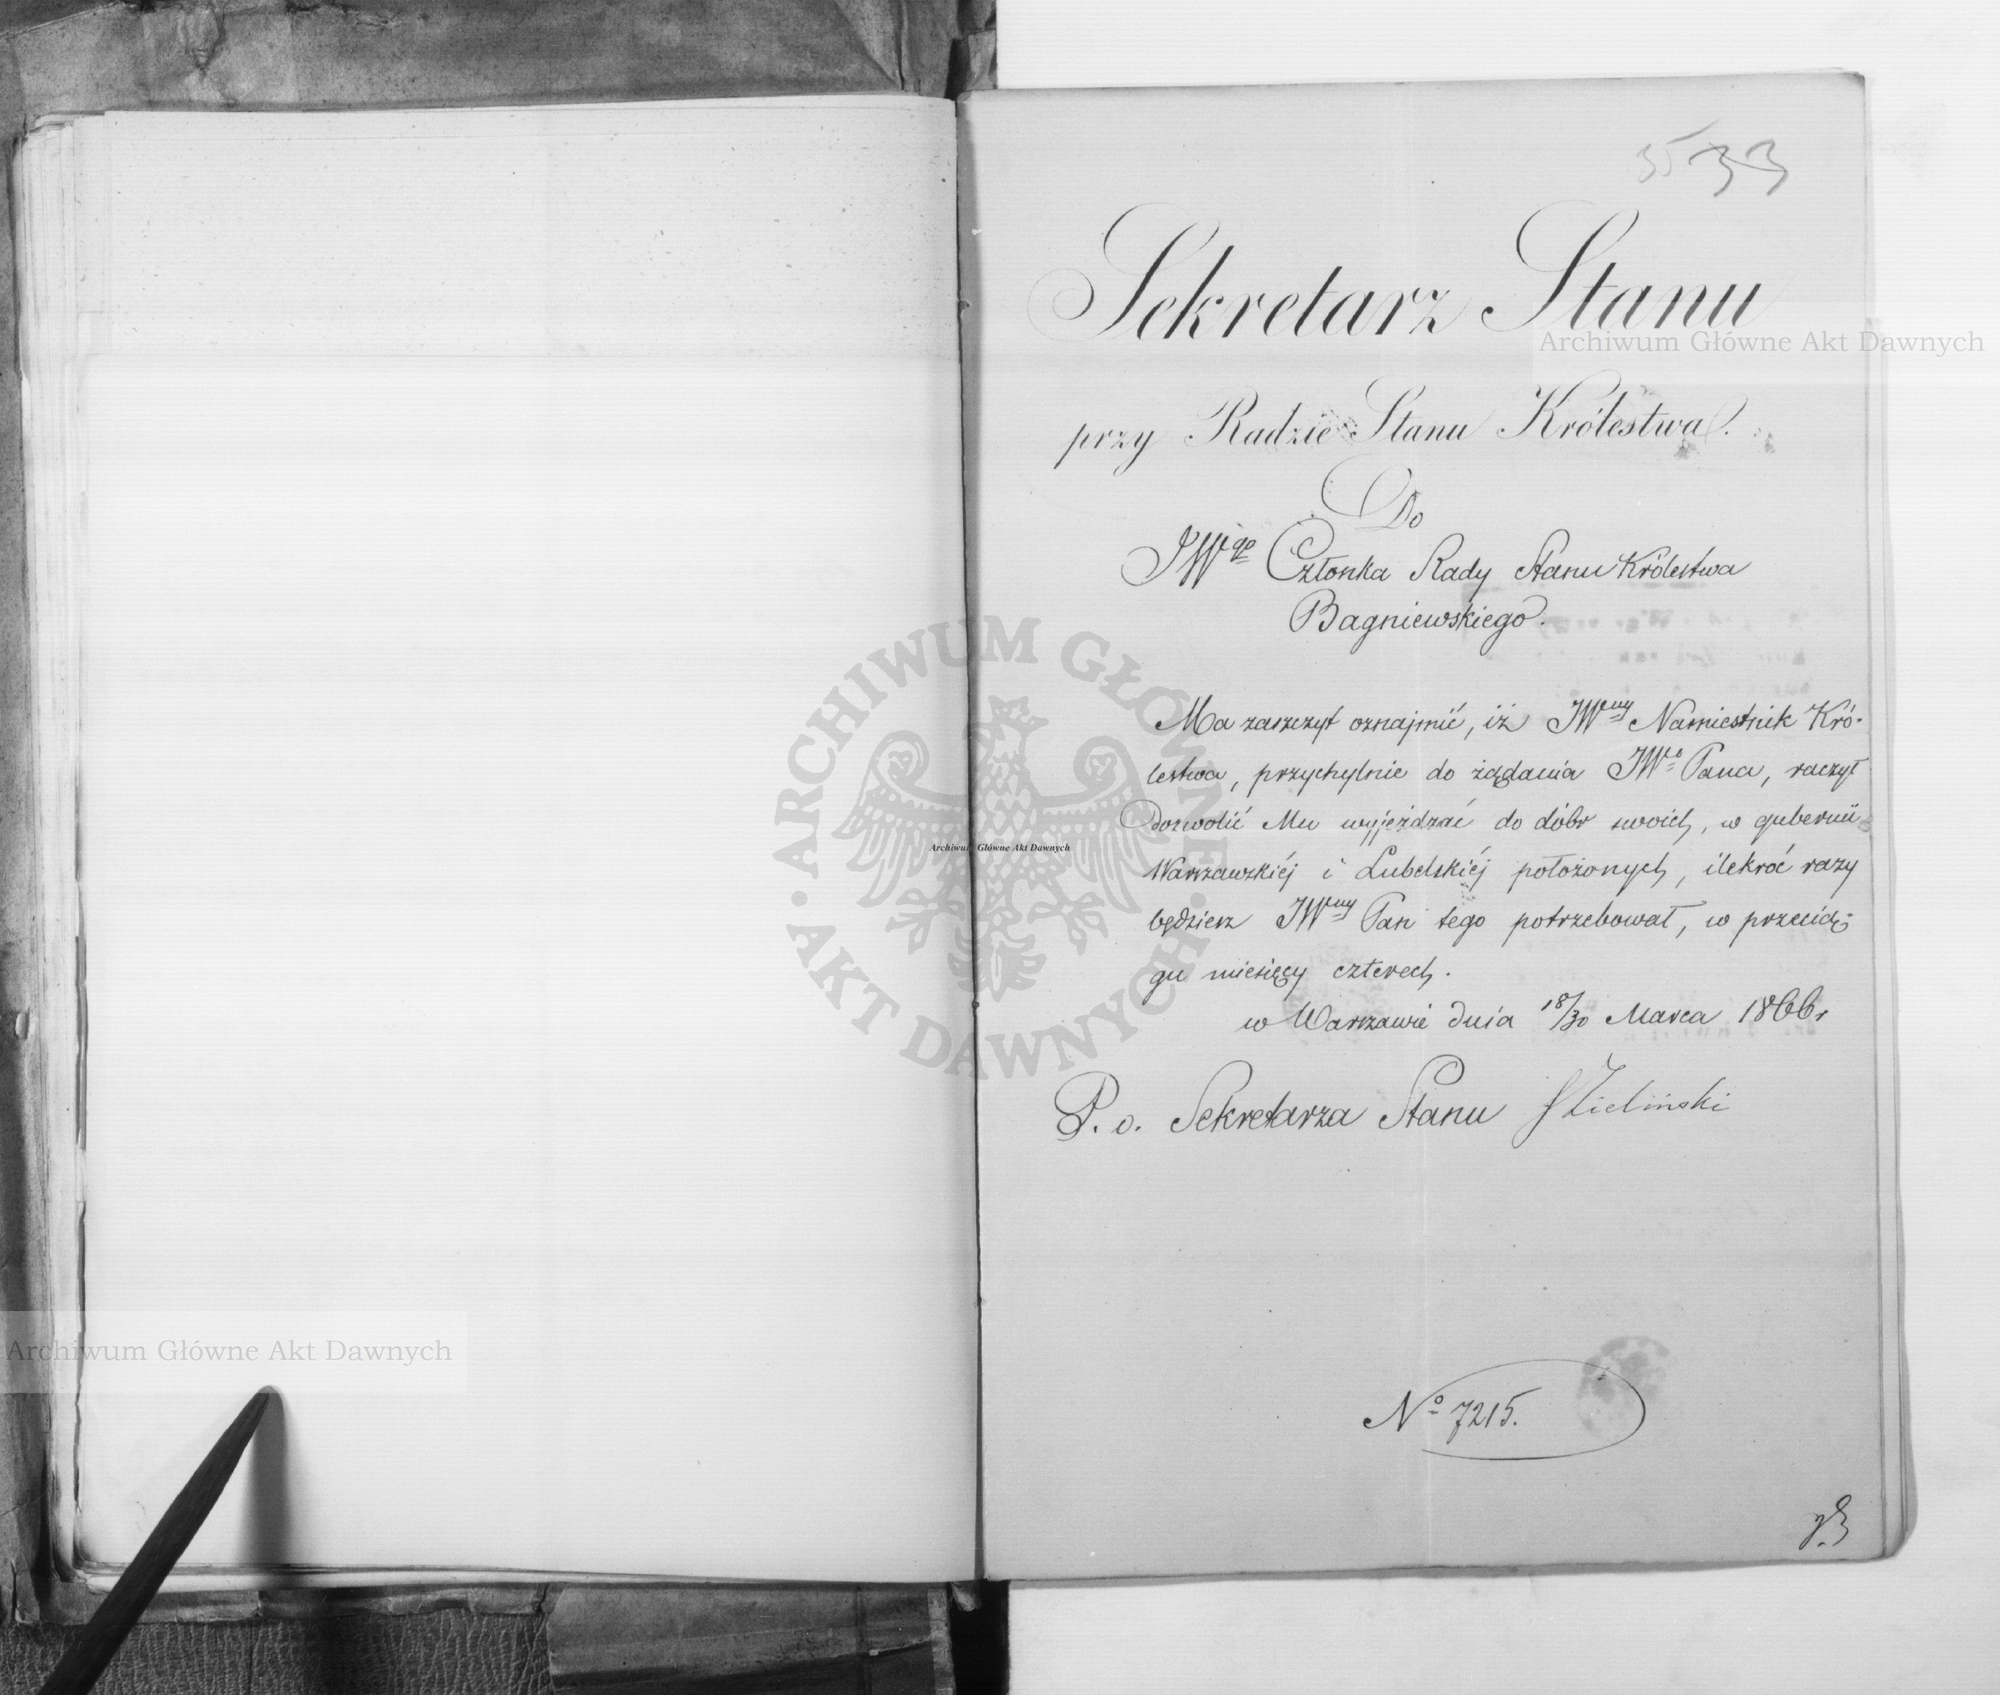 35 33
Sekretarz Stanu
przy Radzie Stanu Królestwa.
Do
JWgo Członka Rady Stanu Królestwa
Bagniewskiego.
Ma zaszczyt oznajmić, iż JWny Namiestnik Kró-
lestwa, przychylnie do żądania JWo Pana, raczył
dozwolić Mu wyjeżdzać do dóbr swoich, w gubernii
Warszawskiéj i Lubelskiéj położonych, ilekroć razy
będziesz JWny Pan tego potrzebował, w przecią-
gu miesięcy czterech.
w Warszawie dnia 18/30 Marca 1866 r
P. o. Sekretarza Stanu Zieliński
No 7215.
Archiwum Główne Akt Dawnych
Archiwum Główne Akt Dawnych
Archiwum Główne Akt Dawnych
ARCHIWUM GŁÓWNE · AKT DAWNYCH ·